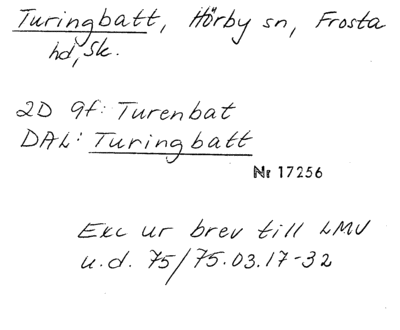 Turingbatt, Hörby sn, Frosta
hd, Sk.
2D 9f: Turenbat
DAL: Turingbatt
Nr 17256
Exc ur brev till LMV
u.d. 75/75.03.17-32